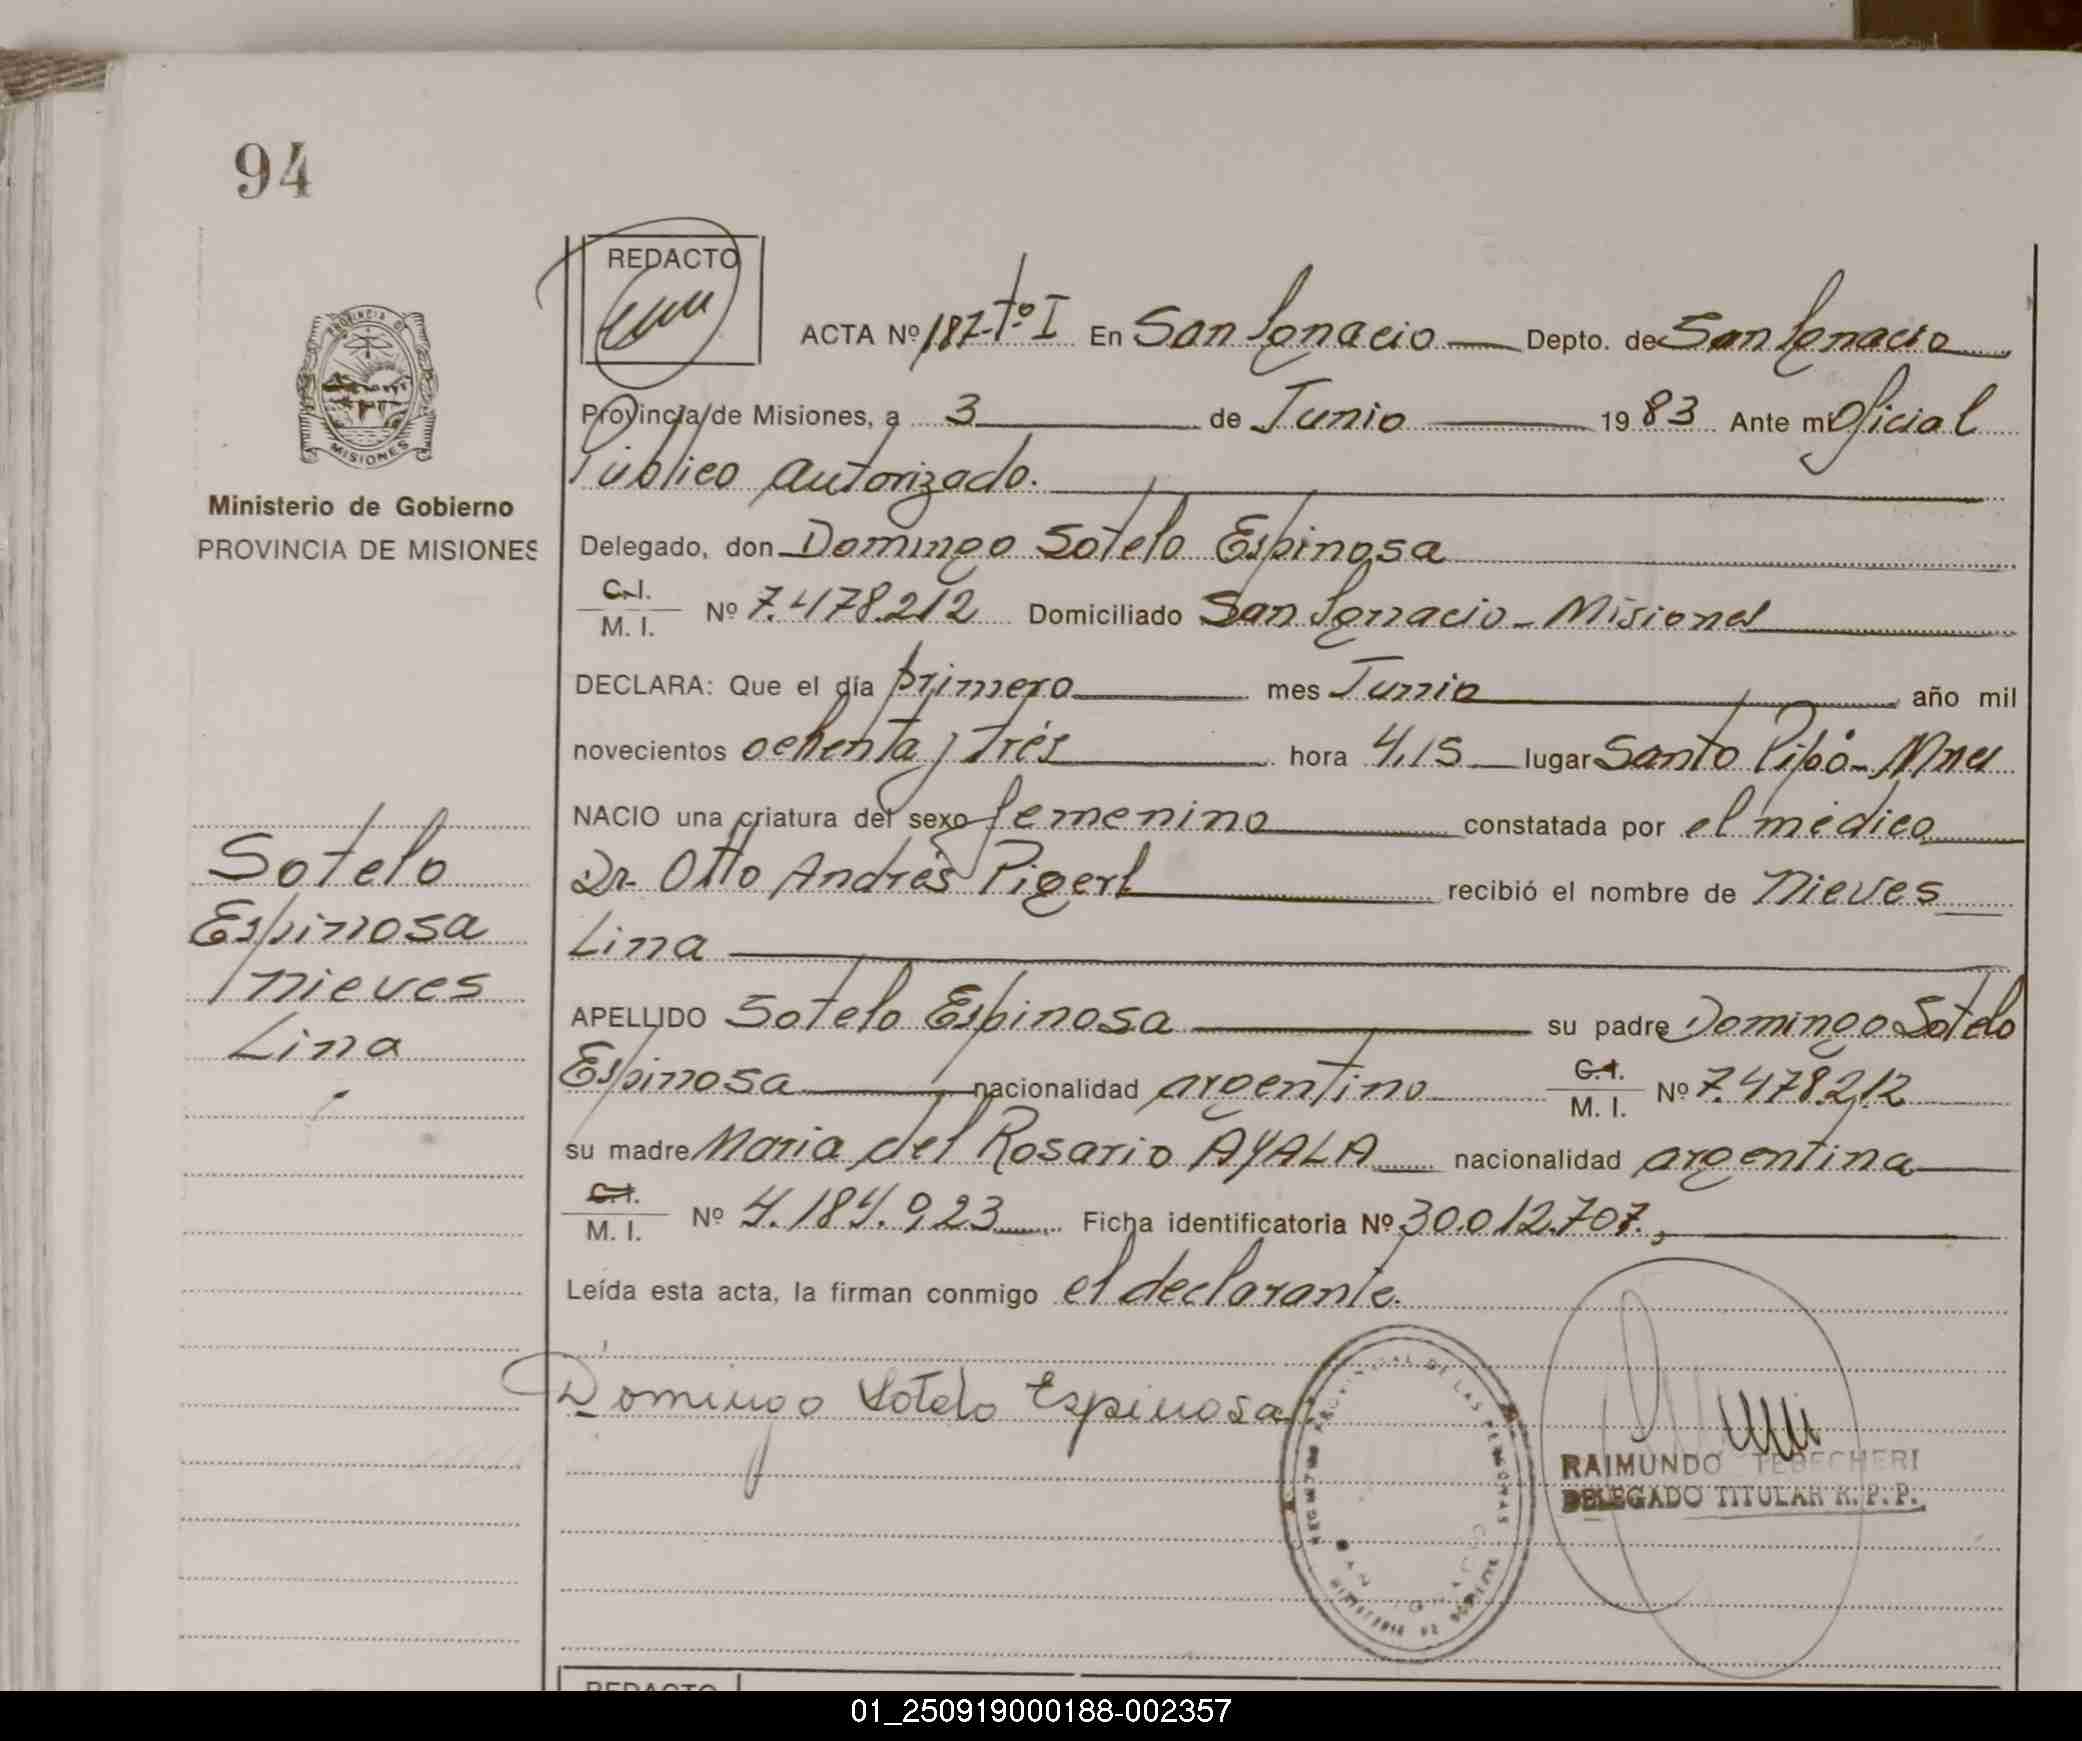 94
REDACTO
ACTA Nº 187-Tº I En San Ignacio Depto. de San Ignacio
Provincia de Misiones, a 3 de Junio 1983 Ante mí Oficial
Público Autorizado.
PROVINCIA DE
MISIONES
Ministerio de Gobierno
PROVINCIA DE MISIONES
Delegado, don Domingo Sotelo Espinosa
C.I.
M. I. Nº 7.478.212 Domiciliado San Ignacio - Misiones
DECLARA: Que el día primero mes Junio año mil
novecientos ochenta y trés hora 4,15 lugar Santo Pipó - Mnes
NACIO una criatura del sexo femenino constatada por el médico
Dr. Otto Andrés Pigerl recibió el nombre de Nieves
Lina
APELLIDO Sotelo Espinosa su padre Domingo Sotelo
Espinosa nacionalidad argentino C.I.
M. I. Nº 7.478.212
su madre Maria del Rosario AYALA nacionalidad argentina
C.I.
M. I. Nº 4.184.923 Ficha identificatoria Nº 30.012.707.,
Leída esta acta, la firman conmigo el declarante.
Sotelo
Espinosa
Nieves
Lina
Domingo Sotelo Espinosa
REGISTRO PROVINCIAL DE LAS PERSONAS
SAN IGNACIO
MINISTERIO DE GOBIERNO
RAIMUNDO TEBECHERI
DELEGADO TITULAR R. P. P.
REDACTO
01_250919000188-002357